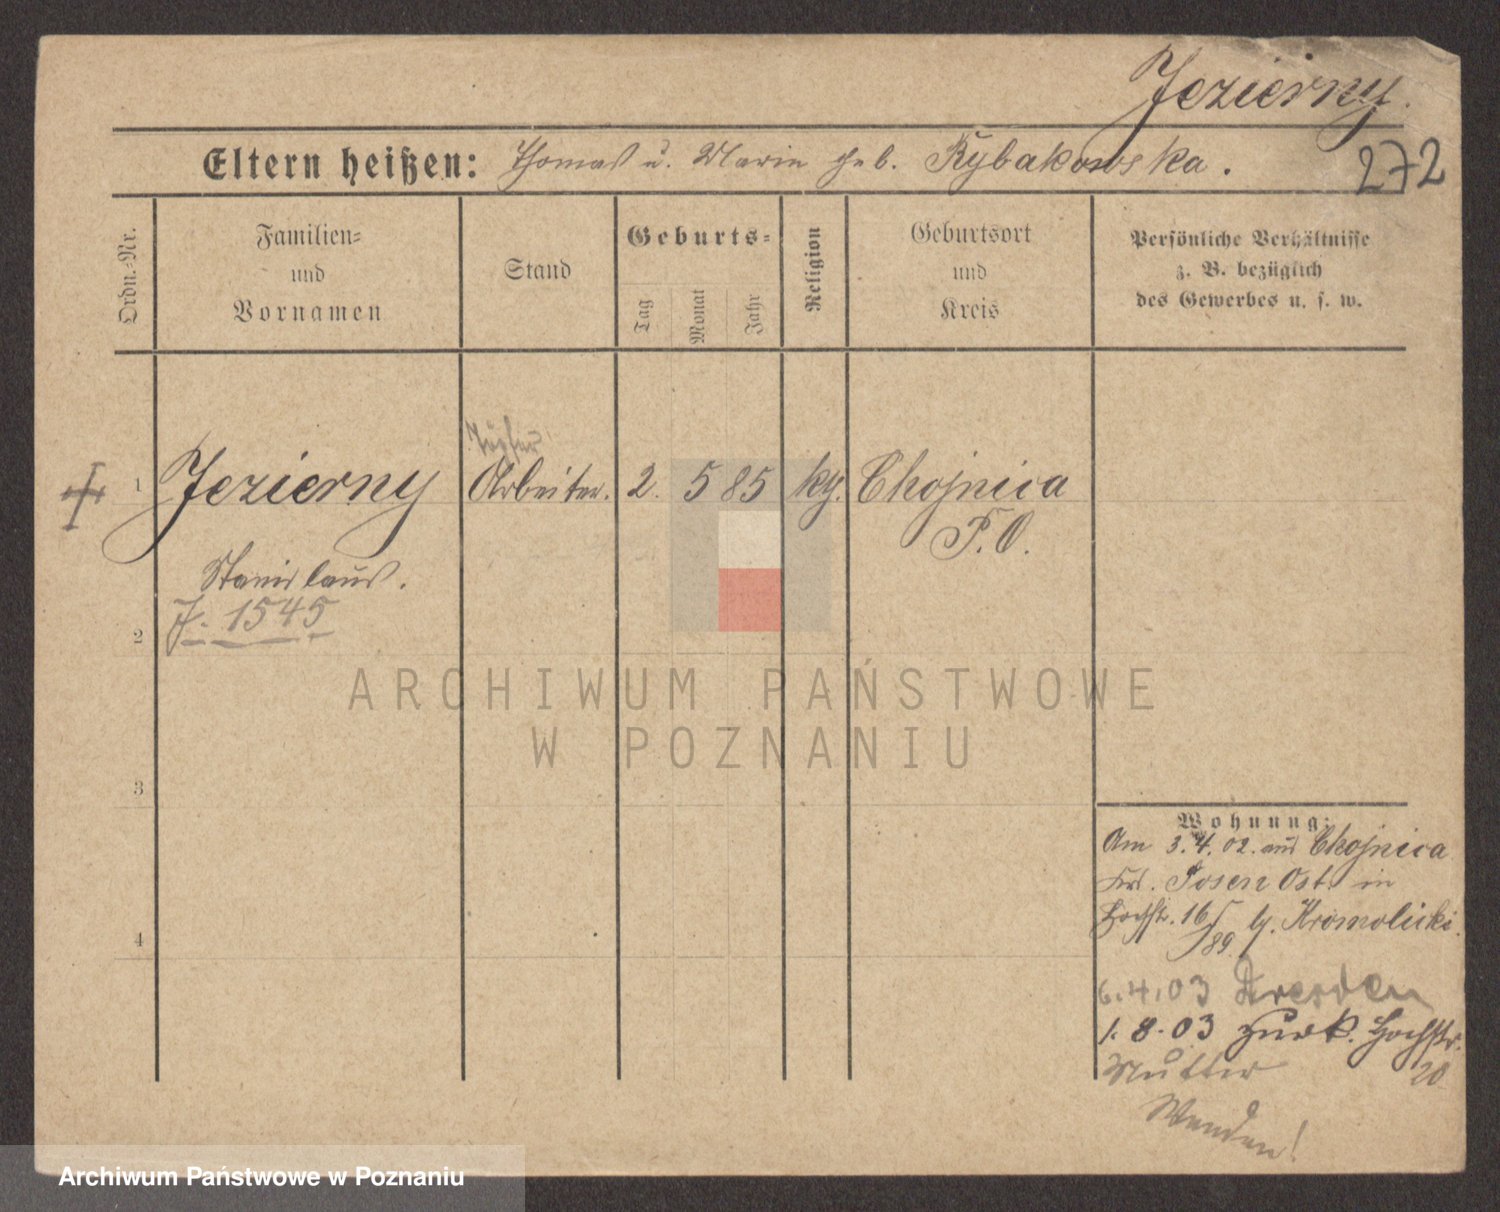 Jezierny.
272
Eltern heißen: Thomas u. Maria geb. Rybakowska.
Ordn.-Nr.
Familien-
und
Vornamen
Stand
Geburts-
Tag
Monat
Jahr
Religion
Geburtsort
und
Kreis
Persönliche Verhältnisse
z. B. bezüglich
des Gewerbes u. s. w.
Töpfer
1 Jezierny Arbeiter. 2. 5 85 kg. Chojnica
P. O.
Stanislaus.
J. 1545
2
ARCHIWUM PAŃSTWOWE
W POZNANIU
3
4
Wohnung:
Am 3.4.02. aus Chojnica
Krs. Posen Ost. in
Hochstr. 16 b/. Kromolicki.
/89.
6.4.03 Dresden
1.8.03 zurk. Hochstr.
Mutter 20
Wenden!
Archiwum Państwowe w Poznaniu